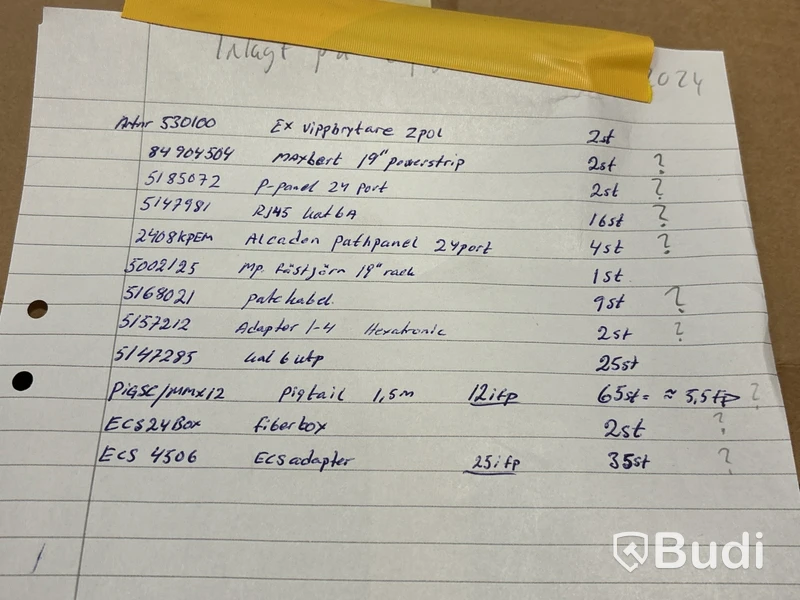 Inlagt på 2024
Artnr 530100 Ex vippbrytare 2pol 2st
84904504 Maxbert 19" powerstrip 2st ?
5185072 P-panel 24 port 2st ?
5147981 RJ45 kat6A 16st ?
2408KPEM Alcaden Pathpanel 24port 4st ?
5002125 Mp. fästjärn 19" rack 1st
5168021 patchkabel. 9st ?
5157212 Adapter 1-4 Hexatronic 2st ?
5147285 kal 6 utp 25st
PIGSC/MMX12 Pigtail 1,5m 12ifp 65st= ≈ 5,5fp ?
ECS24Box fiberbox 2st ?
ECS 4506 ECSadapter 25ifp 35st ?
Budi